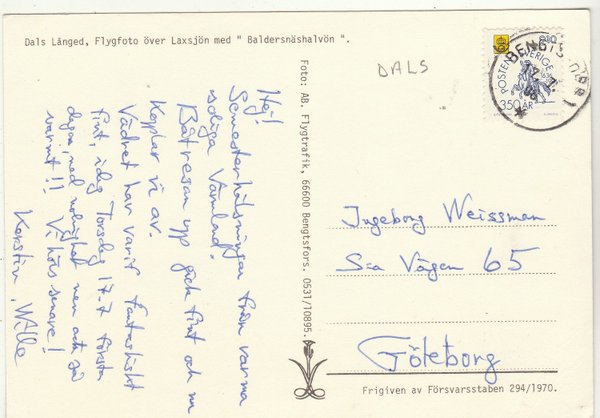 Dals Långed, Flygfoto över Laxsjön med " Baldersnäshalvön ".
DALS
BENGTSFORS
POSTEN SVERIGE
350 ÅR
Hej!
Semesterhälsningar från varma
soliga Värmland.
Båtresan upp gick fint och nu
kopplar vi av.
Vädret har varit fantastiskt
fint, idag Torsdag 17.7 första
dagen med molnighet men ack så
varmt!! Vi hörs senare!
Kerstin, Wille
Foto: AB. Flygtrafik, 66600 Bengtsfors. 0531/10895
Ingeborg Weissman
S:a Vägen 65
Göteborg
Frigiven av Försvarsstaben 294/1970.